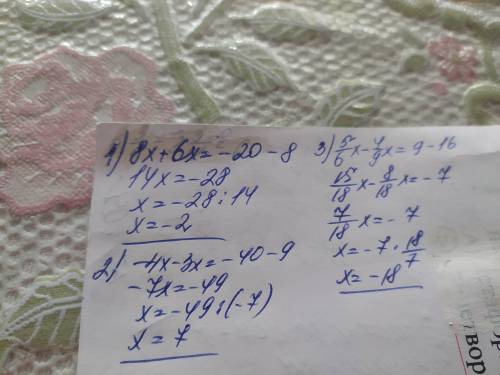 1) 8x+6x=-20-8
14x=-28
x=-28:14
x=-2
2) -4x-3x=-40-9
-7x=-49
x=-49:(-7)
x=7
3) 5/6x-4/9x=9-16
15/18x-8/18x=-7
7/18x=-7
x=-7·18/7
x=-18
вор